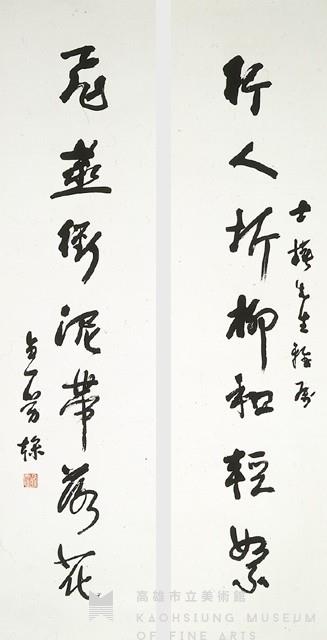 行人折柳和輕絮
士 先生雅屬
飛燕銜泥帶落花
貞一勞榦
高雄市立美術館
KAOHSIUNG MUSEUM
OF FINE ARTS